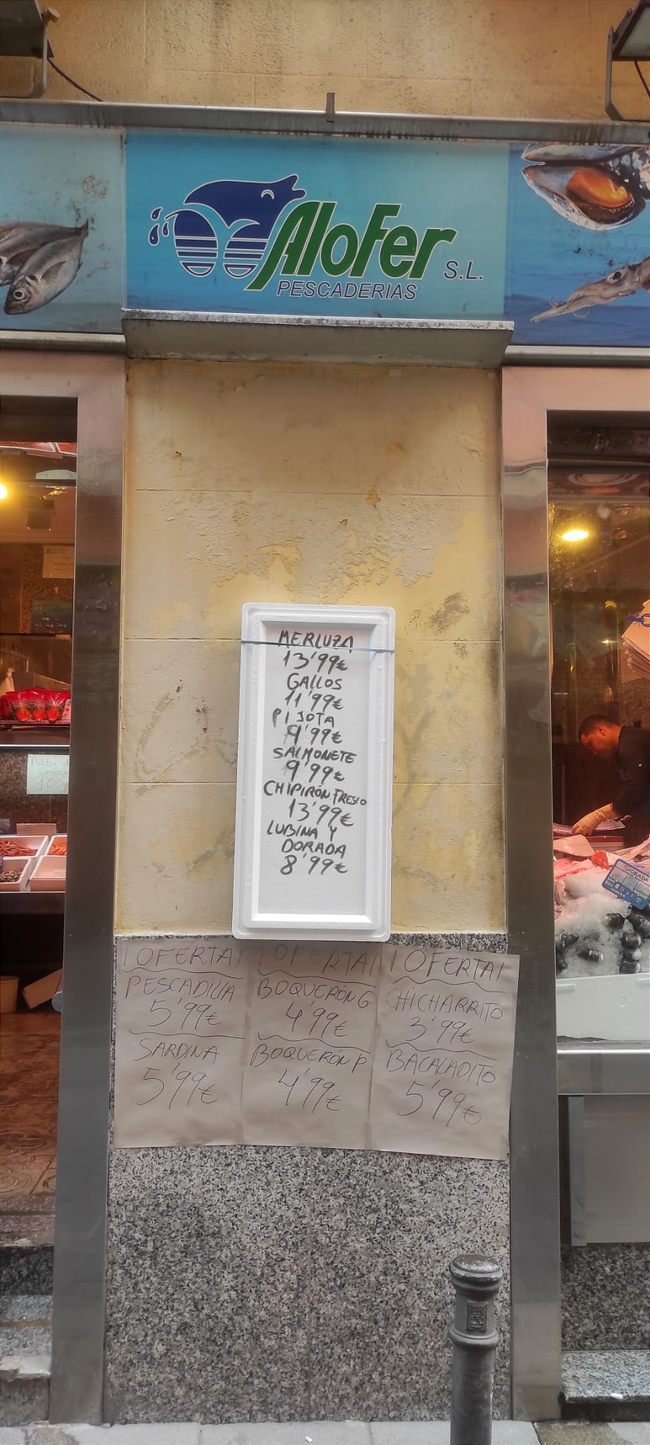 AloFer S.L.
PESCADERIAS
MERLUZA
13'99€
GALLOS
11'99€
PIJOTA
9'99€
SALMONETE
9'99€
CHIPIRÓN FRESCO
13'99€
LUBINA Y
DORADA
8'99€
¡OFERTA!
PESCADILLA
5'99€
SARDINA
5'99€
¡OFERTA!
BOQUERÓN G
4'99€
BOQUERÓN P
4'99€
¡OFERTA!
CHICHARRITO
3'99€
BACALADITO
5'99€